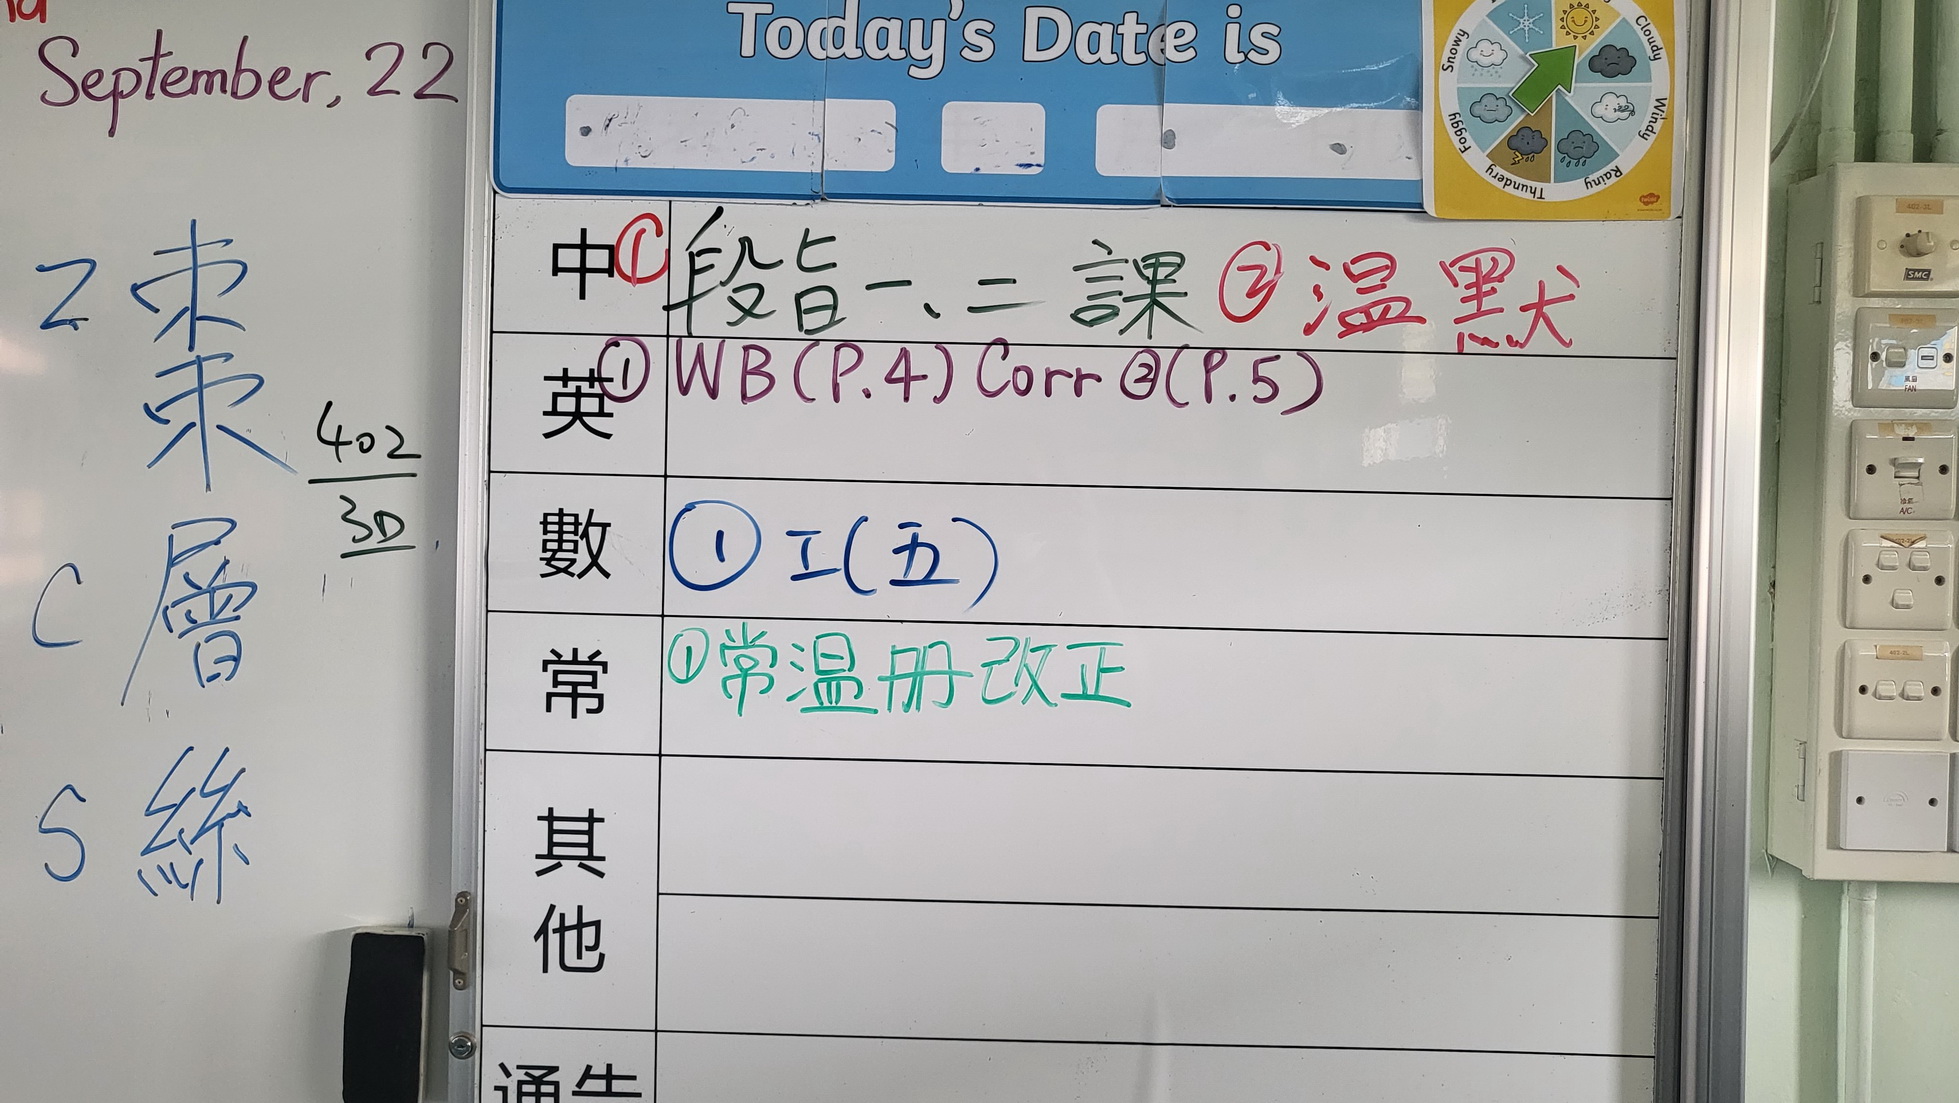 September, 22
Z 朿
朿
C 層
S 絲
402
3D
Today's Date is
Snowy
Cloudy
Windy
Rainy
Thundery
Foggy
中 ① 段旨一、二課 ② 温默
英 ① WB(P.4) Corr ②(P.5)
數 ① 工(五)
常 ① 常温册改正
其他
通告
SMC
FAN
A/C